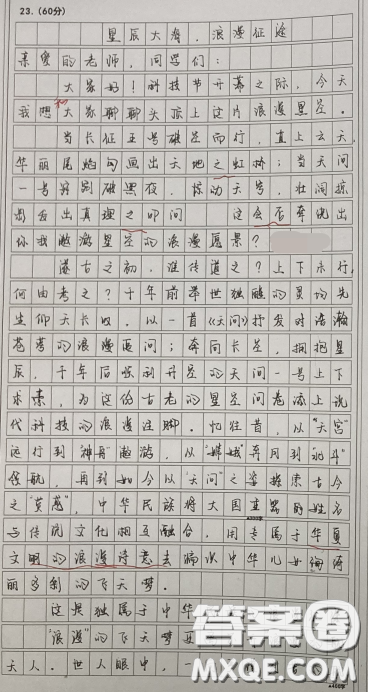 23.（60分）
星辰大海，浪漫征途
亲爱的老师，同学们：
大家好！科技节开幕之际，今天
我想和大家聊聊头顶上这片浪漫星空。
当长征五号破空而行，直上云天，
华丽尾焰勾画出天地之虹桥；当天问
一号剪影破黑夜，惊动天穹，壮阔掠
出真理之叩问 这会否奔绕出
你我遨游星空的浪漫愿景？
遂古之初，谁传道之？上下未行，
何由考之？千年前举世独醒的灵均先
生仰天长叹，以一首《天问》抒发对浩瀚
苍穹的浪漫追问；奔向长空，拥抱星
辰，千年后呼啸升空的天问一号上下
求索，为这份古老的星空问卷添上现
代科技的浪漫注脚。忆往昔，以“天宫”
运行到“神舟”遨游，以“嫦娥”奔月到“北斗”
领航，再到如今以“天问”之姿探索古今
之“莫惑”，中华民族将大国重器的姓名
与传统文化相互融合，用专属于华夏
文明的浪漫诗意去编织中华儿女绚涛
丽多彩的飞天梦。
这是独属于中华
“浪漫”的飞天梦
天人。世人眼中，一
答案圈
MXQE.COM